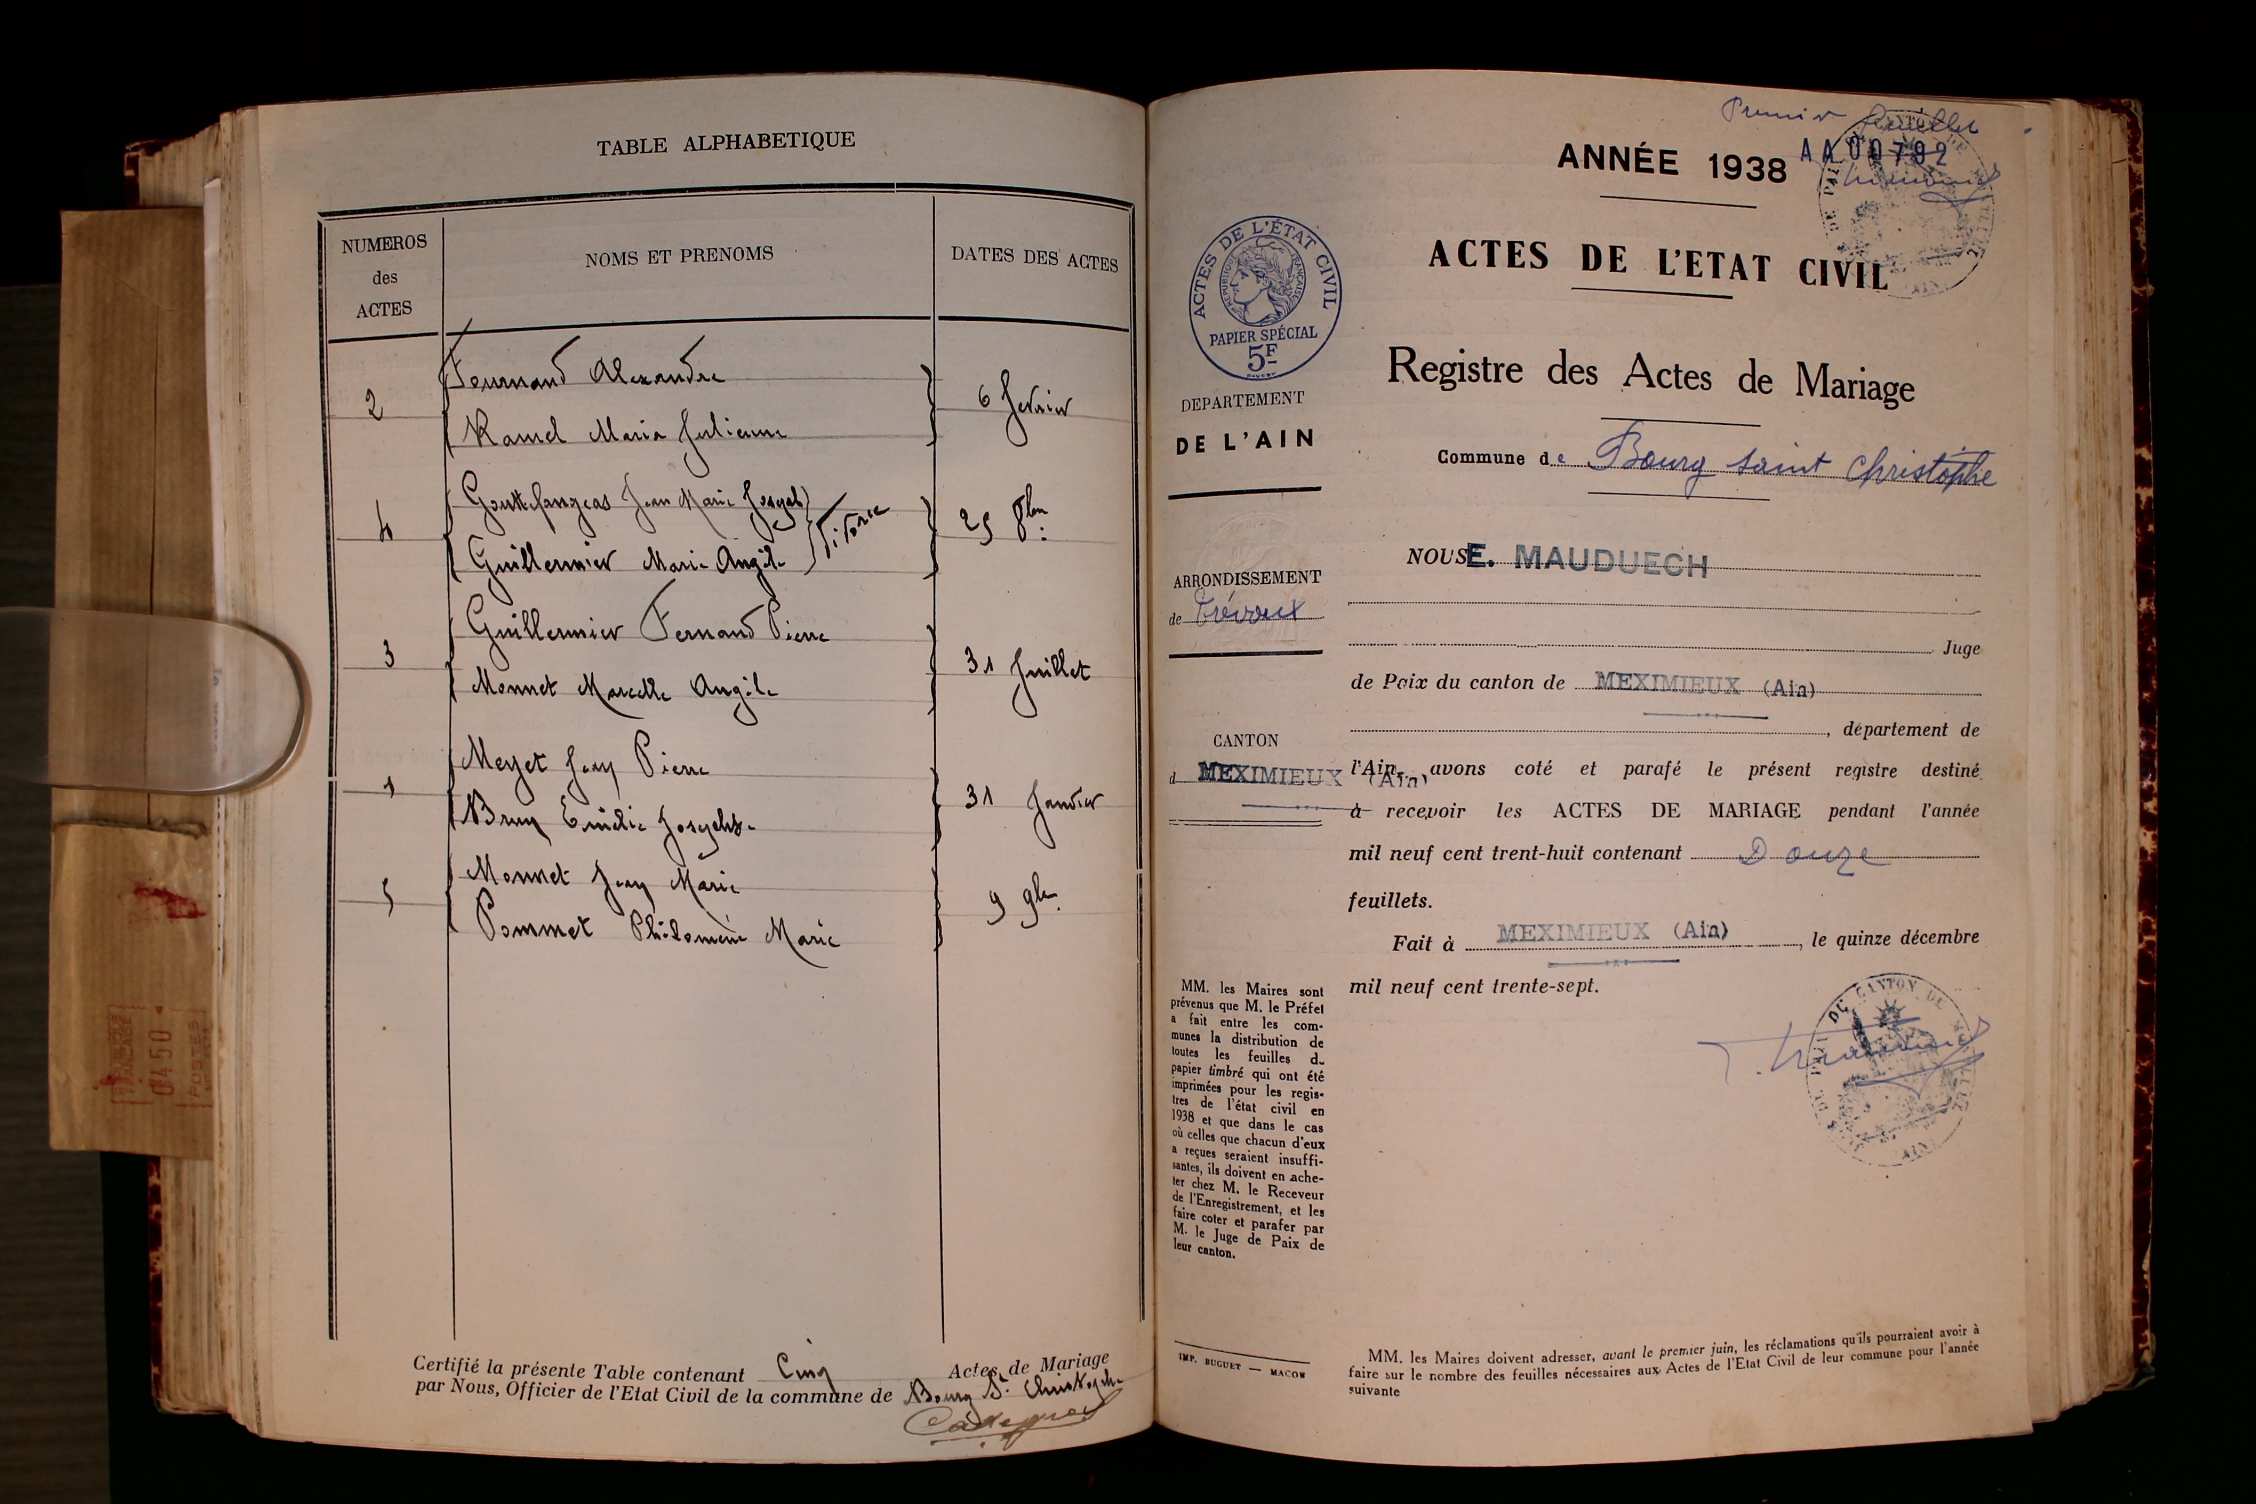 TABLE ALPHABETIQUE
NUMEROS
des
ACTES
NOMS ET PRENOMS
DATES DES ACTES
Alexandre
2
6 fevrier
Ramel Maria Julienne
Jean Marie Joseph
4
25 8bre
Guillermier Marie Angèle
Guillermier Fernand Pierre
3
31 Juillet
Monnet Marcelle Angèle
Meyet Jean Pierre
1
31 Janvier
Brun Emélie Josephte
Monnet Jean Marie
5
9 9bre
Pommet Philomène Marie
Certifié la présente Table contenant Cinq Actes de Mariage
par Nous, Officier de l'Etat Civil de la commune de Bourg St Christophe
Premier feuillet
ANNÉE 1938
AA00792
ACTES DE L'ETAT CIVIL
ACTES DE L'ÉTAT CIVIL
RÉPUBLIQUE FRANÇAISE
PAPIER SPÉCIAL
5F
Registre des Actes de Mariage
DEPARTEMENT
DE L'AIN
Commune de Bourg saint Christophe
NOUS E. MAUDUECH
ARRONDISSEMENT
de Trévoux
Juge
de Paix du canton de MEXIMIEUX (Ain)
, département de
CANTON
d MEXIMIEUX (Ain)
l'Ain, avons coté et parafé le présent registre destiné
à recevoir les ACTES DE MARIAGE pendant l'année
mil neuf cent trent-huit contenant Douze
feuillets.
Fait à MEXIMIEUX (Ain), le quinze décembre
mil neuf cent trente-sept.
MM. les Maires sont
prévenus que M. le Préfet
a fait entre les com-
munes la distribution de
toutes les feuilles de
papier timbré qui ont été
imprimées pour les regis-
tres de l'état civil en
1938 et que dans le cas
où celles que chacun d'eux
a reçues seraient insuffi-
santes, ils doivent en ache-
ter chez M. le Receveur
de l'Enregistrement, et les
faire coter et parafer par
M. le Juge de Paix de
leur canton.
IMP. BUGUET — MACON
MM. les Maires doivent adresser, avant le premier juin, les réclamations qu'ils pourraient avoir à
faire sur le nombre des feuilles nécessaires aux Actes de l'Etat Civil de leur commune pour l'année
suivante
0450
POSTES